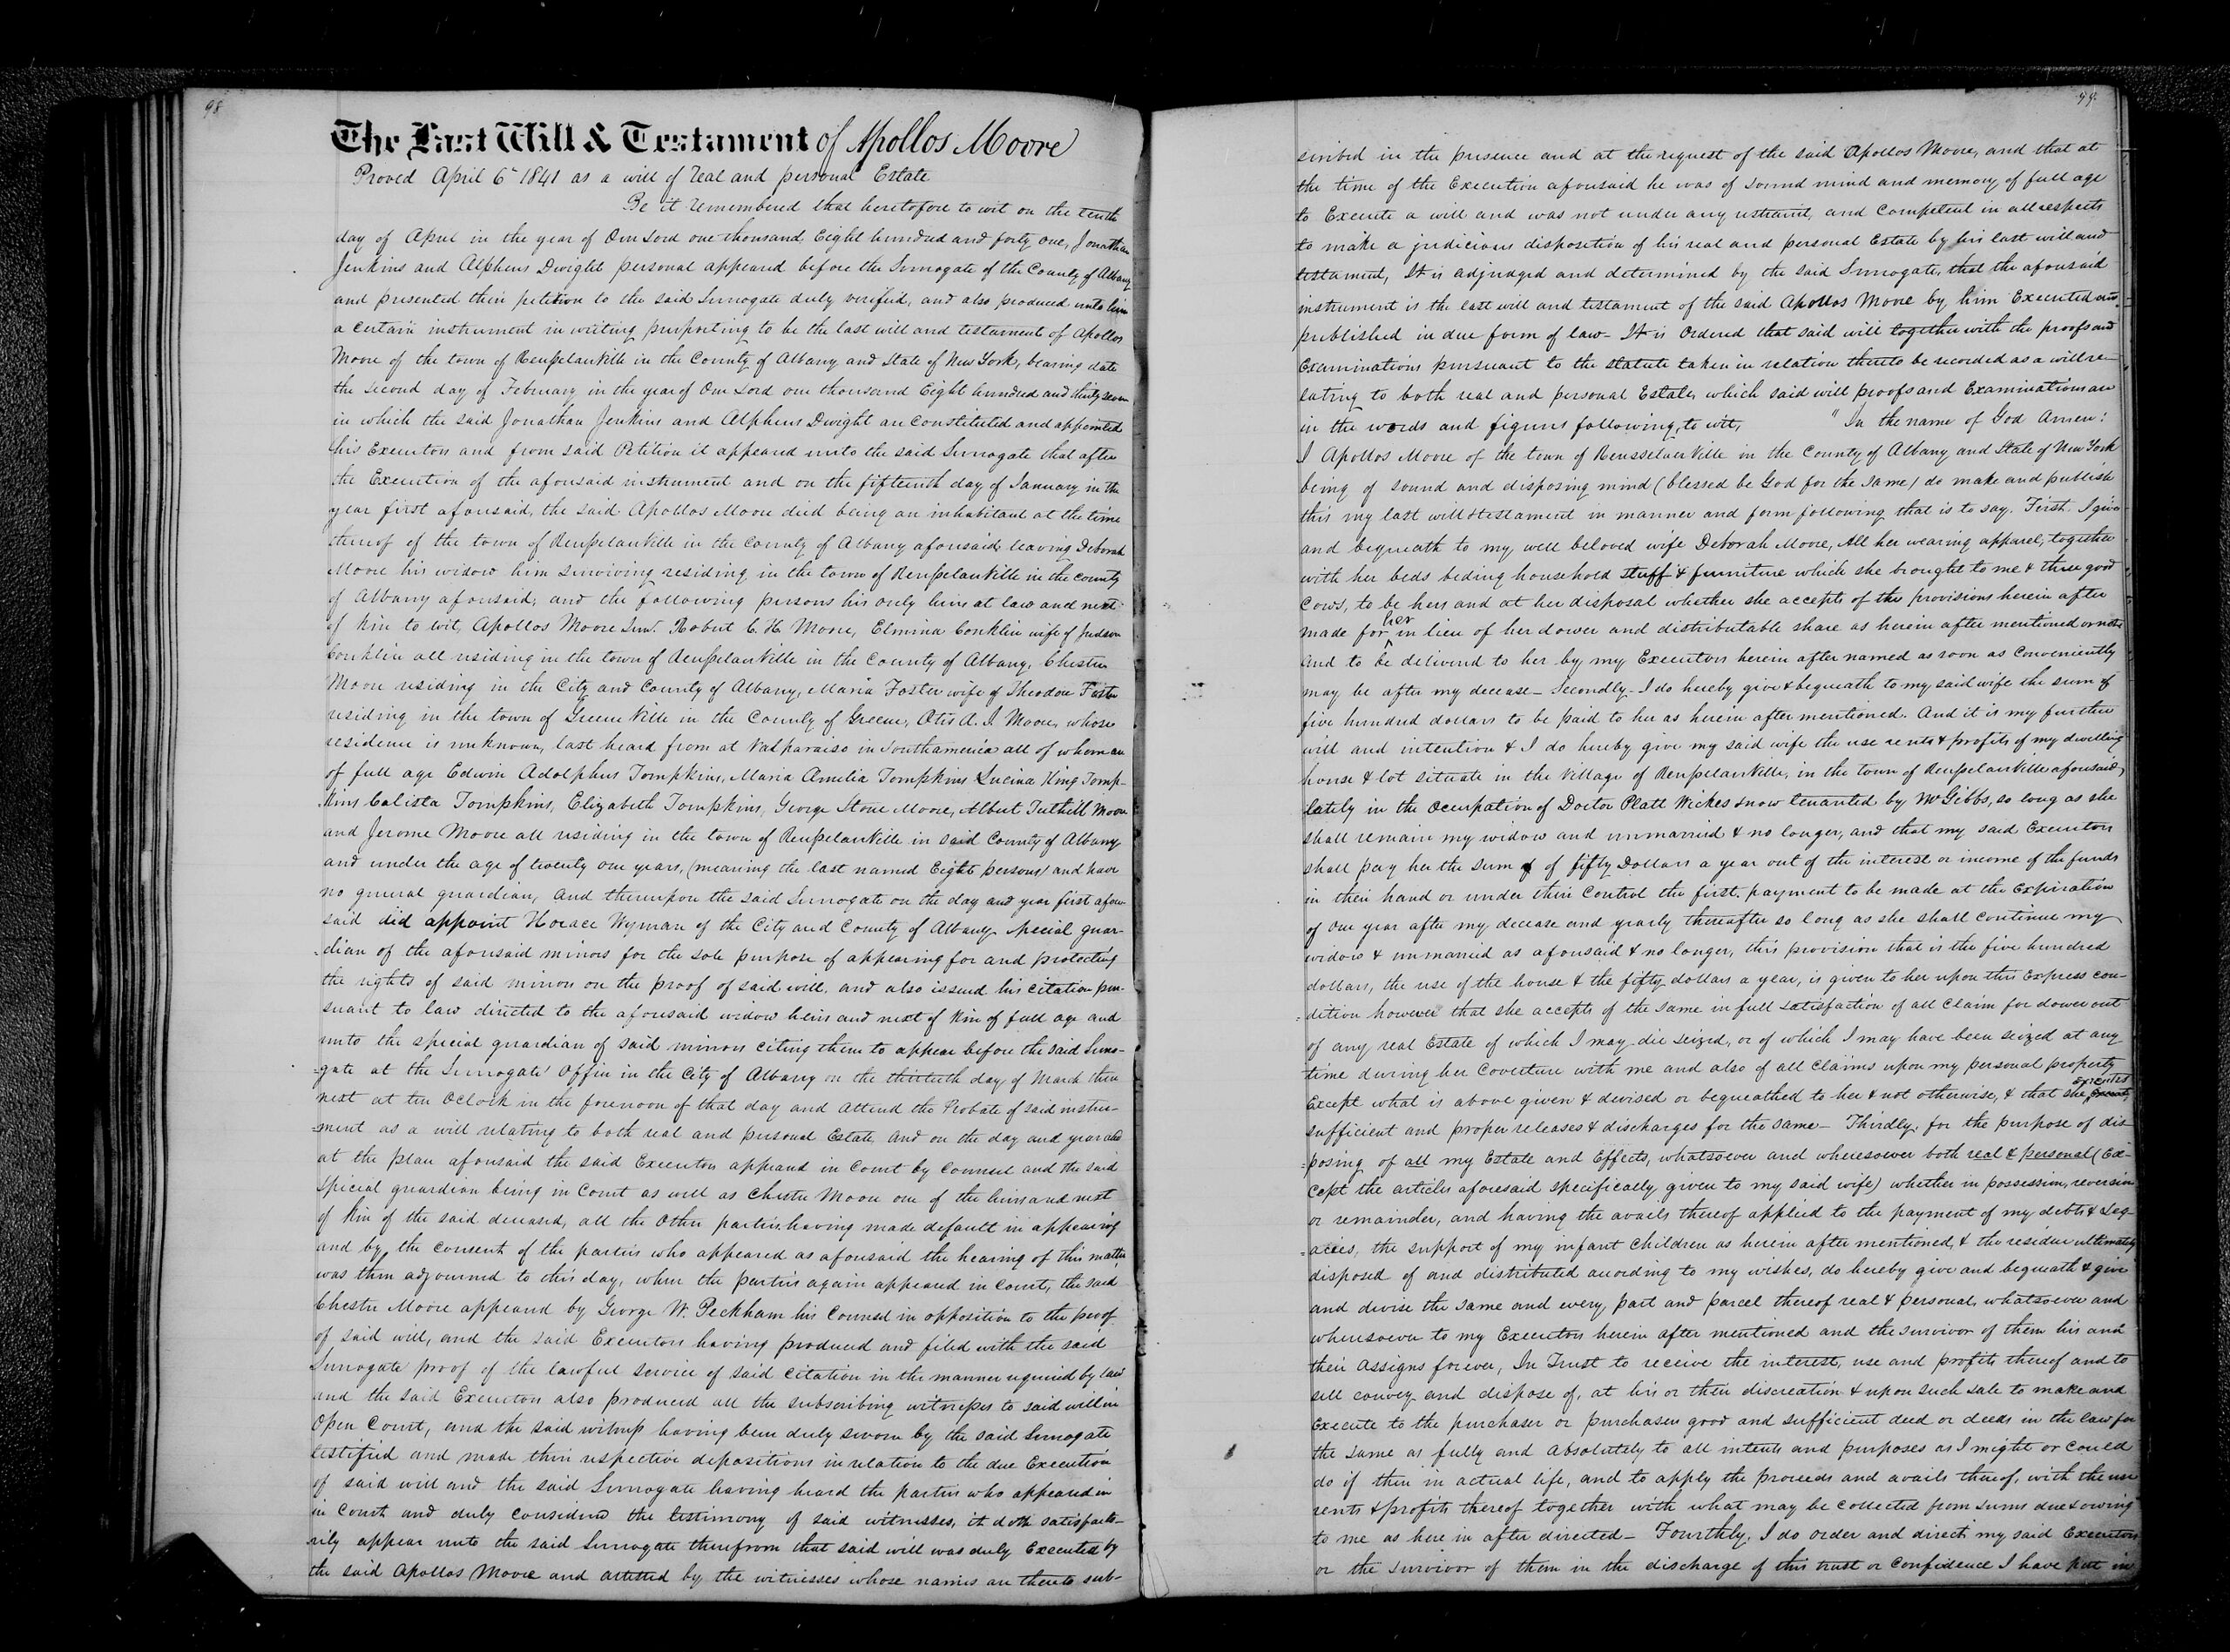 98
The Last Will & Testament of Apollos Moore
Proved April 6th 1841 as a will of real and personal Estate
Be it remembered that heretofore to wit on the tenth
day of April in the year of Our Lord one thousand Eight hundred and forty one, Jonathan
Jenkins and Alpheus Dwight personal appeared before the Surrogate of the County of Albany
and presented their petition to the said Surrogate duly verified, and also produced unto him
a certain instrument in writing purporting to be the last will and testament of Apollos
Moore of the town of Rensselaerville in the County of Albany and State of New York, bearing date
the second day of February in the year of Our Lord one thousand Eight hundred and thirty seven
in which the said Jonathan Jenkins and Alpheus Dwight are constituted and appointed
his Executors and from said Petition it appeared unto the said Surrogate that after
the Execution of the aforesaid instrument and on the fifteenth day of January in the
year first aforesaid, the said Apollos Moore died being an inhabitant at the time
thereof of the town of Rensselaerville in the County of Albany aforesaid, leaving Deborah
Moore his widow him surviving residing in the town of Rensselaerville in the county
of Albany aforesaid, and the following persons his only heirs at law and next
of kin to wit, Apollos Moore Junr. Robert C. H. Moore, Elmina Conklin wife of Judson
Conklin all residing in the town of Rensselaerville in the County of Albany, Chester
Moore residing in the City and County of Albany, Maria Foster wife of Theodore Foster
residing in the town of Greenville in the County of Greene, Otis A. I. Moore, whose
residence is unknown, last heard from at Valparaiso in Southamerica all of whom are
of full age Edwin Adolphus Tompkins, Maria Amelia Tompkins Lucina King Tomp-
kins Calista Tompkins, Elizabeth Tompkins, George Stone Moore, Albert Tuthill Moore
and Jerome Moore all residing in the town of Rensselaerville in said County of Albany
and under the age of twenty one years, (meaning the last named Eight persons) and have
no general guardian, and thereupon the said Surrogate on the day and year first afore
said did appoint Horace Wyman of the City and County of Albany Special guar-
dian of the aforesaid minors for the sole purpose of appearing for and protecting
the rights of said minors on the proof of said will, and also issued his citation pur-
suant to law directed to the aforesaid widow heirs and next of kin of full age and
unto the special guardian of said minors citing them to appear before the said Surro-
gate at the Surrogates' Office in the City of Albany on the thirtieth day of March then
next at ten OClock in the forenoon of that day and attend the Probate of said instru-
ment as a will relating to both real and personal Estate and on the day and year and
at the place aforesaid the said Executors appeared in Court by Counsel and the said
Special guardian being in Court as well as Chester Moore one of the heirs and next
of kin of the said deceased, all the other parties having made default in appearing
and by the consent of the parties who appeared as aforesaid the hearing of this matter
was then adjourned to this day, when the parties again appeared in Court, the said
Chester Moore appeared by George W. Peckham his Counsel in opposition to the proof
of said will, and the said Executors having produced and filed with the said
Surrogate proof of the lawful service of said citation in the manner required by law
and the said Executors also produced all the subscribing witnesses to said will in
Open Court, and the said witness having been duly sworn by the said Surrogate
testified and made their respective depositions in relation to the due Execution
of said will and the said Surrogate having heard the parties who appeared in
in Court and duly considered the testimony of said witnesses, it doth satisfacto-
rily appear unto the said Surrogate therefrom that said will was duly Executed by
the said Apollos Moore and attested by the witnesses whose names are thereto sub-
99.
scribed in the presence and at the request of the said Apollos Moore, and that at
the time of the Execution aforesaid he was of sound mind and memory of full age
to Execute a will and was not under any restraint, and Competent in all respects
to make a judicious disposition of his real and personal Estate by his last will and
testament, It is adjudged and determined by the said Surrogate, that the aforesaid
instrument is the last will and testament of the said Apollos Moore by him Executed and
published in due form of law - It is Ordered that said will together with the proofs and
Examinations pursuant to the statute taken in relation thereto be recorded as a will re-
lating to both real and personal Estate, which said will proofs and Examinations are
in the words and figures following, to wit, "In the name of God Amen:
I Apollos Moore of the town of Rensselaerville in the County of Albany and State of New York
being of sound and disposing mind (blessed be God for the same) do make and publish
this my last will & testament in manner and form following that is to say. First. I give
and bequeath to my well beloved wife Deborah Moore, All her wearing apparel, together
with her beds beding household stuff & furniture which she brought to me & three good
Cows, to be hers and at her disposal whether she accepts of the provisions herein after
made for her in lieu of her dower and distributable share as herein after mentioned or not
and to be delivered to her by my Executors herein after named as soon as Conveniently
may be after my decease - Secondly - I do hereby give & bequeath to my said wife the sum of
five hundred dollars to be paid to her as herein after mentioned. And it is my further
will and intention & I do hereby give my said wife the use rents & profits of my dwelling
house & lot situate in the Village of Rensselaerville, in the town of Rensselaerville aforesaid,
lately in the Occupation of Doctor Platt Wickes & now tenanted by Mr Gibbs, so long as she
shall remain my widow and unmarried & no longer, and that my said Executors
shall pay her the sum of of fifty Dollars a year out of the interest or income of the funds
in their hand or under their Control the first payment to be made at the Expiration
of one year after my decease and yearly thereafter so long as she shall continue my
widow & unmarried as aforesaid & no longer, this provision that is the five hundred
dollars, the use of the house & the fifty dollars a year, is given to her upon this Express con-
dition however that she accepts of the same in full satisfaction of all Claim for dower out
of any real Estate of which I may die seized, or of which I may have been seized at any
time during her Coverture with me and also of all Claims upon my personal property
Except what is above given & devised or bequeathed to her & not otherwise, & that she executes
sufficient and proper releases & discharges for the same - Thirdly. for the purpose of dis
posing of all my Estate and Effects, whatsoever and wheresoever both real & personal (Ex-
cept the articles aforesaid specifically given to my said wife) whether in possession, reversion
or remainder, and having the avails thereof applied to the payment of my debts & Leg-
acies, the support of my infant Children as herein after mentioned, & the residue ultimately
disposed of and distributed according to my wishes, do hereby give and bequeath & give
and devise the same and every, part and parcel thereof real & personal, whatsoever and
wheresoever to my Executors herein after mentioned and the survivor of them his and
their assigns forever, In Trust to receive the interest, use and profits thereof and to
sell convey and dispose of, at his or their discreation & upon such sale to make and
Execute to the purchaser or purchasers good and sufficient deed or deeds in the law for
the same as fully and absolutely to all intents and purposes as I might or could
do if then in actual life, and to apply the proceeds and avails thereof, with the use
rents & profits thereof together with what may be collected from sums due & owing
to me as here in after directed - Fourthly. I do order and direct, my said Executors
or the survivor of them in the discharge of this trust or confidence I have put in